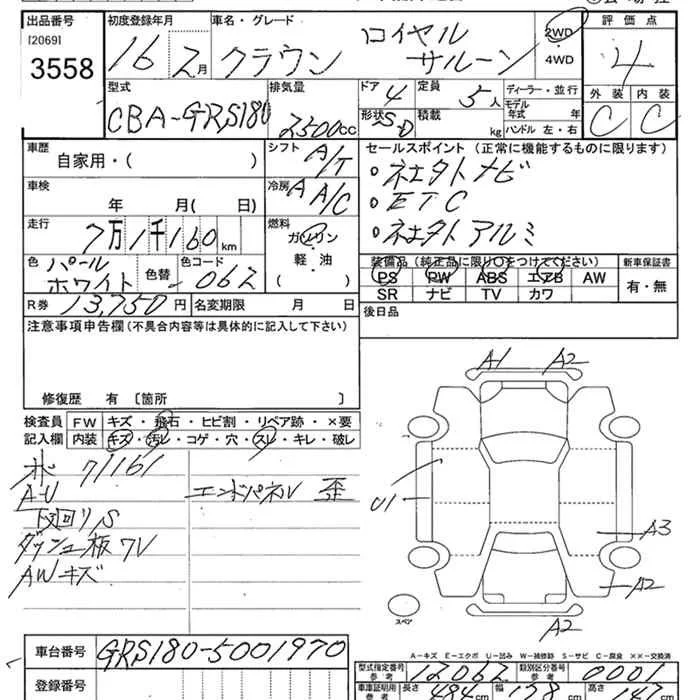 出品番号 初度登録年月 車名・グレード 評価点
[2069]
3558
16 2月 クラウン ロイヤルサルーン 2WD ・4WD 4
型式 排気量 ドア 定員 ディーラー・並行 外装 内装
CBA-GRS180 2500cc 4 5人 モデル年式 年 C C
形状 SD 積載 kg ハンドル 左・右
車歴 自家用・( ) シフト A/T セールスポイント(正常に機能するものに限ります)
車検 年 月( 日) 冷房 A A/C
走行 7万1千160km 燃料 ガソリン・軽・油 ( )
・ETC
色 パールホワイト 色替 色コード 062 装備品(純正品に限り○をつけてください) 新車保証書
PS PW ABS エアB AW 有・無
SR ナビ TV カワ
R券 13,750円 名変期限 月 日 後日品
注意事項申告欄(不具合内容等は具体的に記入して下さい)
修復歴 有〔箇所 〕
検査員記入欄 FW キズ・飛石・ヒビ割・リペア跡・×要
内装 キズ・汚レ・コゲ・穴・スレ・キレ・破レ
71161
A-U エンドパネル 歪
下回り S
AWキズ
A1 A2
U1
A3
A2
スペア A2
A-キズ E-エクボ U-凹み W-補修跡 S-サビ C-腐食 ××-交換済
車台番号 GRS180-5001970 型式指定番号 参考 12062 類別区分番号 参考 0001
登録番号 車庫証明用 参考 長さ 484cm 幅 178cm 高さ 147cm